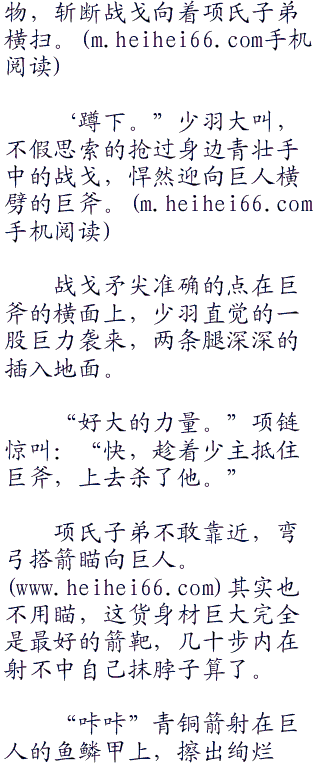 物，斩断战戈向着项氏子弟
横扫。(m.heihei66.com手机
阅读)
‘蹲下。”少羽大叫，
不假思索的抢过身边青壮手
中的战戈，悍然迎向巨人横
劈的巨斧。(m.heihei66.com
手机阅读)
战戈矛尖准确的点在巨
斧的横面上，少羽直觉的一
股巨力袭来，两条腿深深的
插入地面。
“好大的力量。”项链
惊叫：“快，趁着少主抵住
巨斧，上去杀了他。”
项氏子弟不敢靠近，弯
弓搭箭瞄向巨人。
(www.heihei66.com)其实也
不用瞄，这货身材巨大完全
是最好的箭靶，几十步内在
射不中自己抹脖子算了。
“咔咔”青铜箭射在巨
人的鱼鳞甲上，擦出绚烂